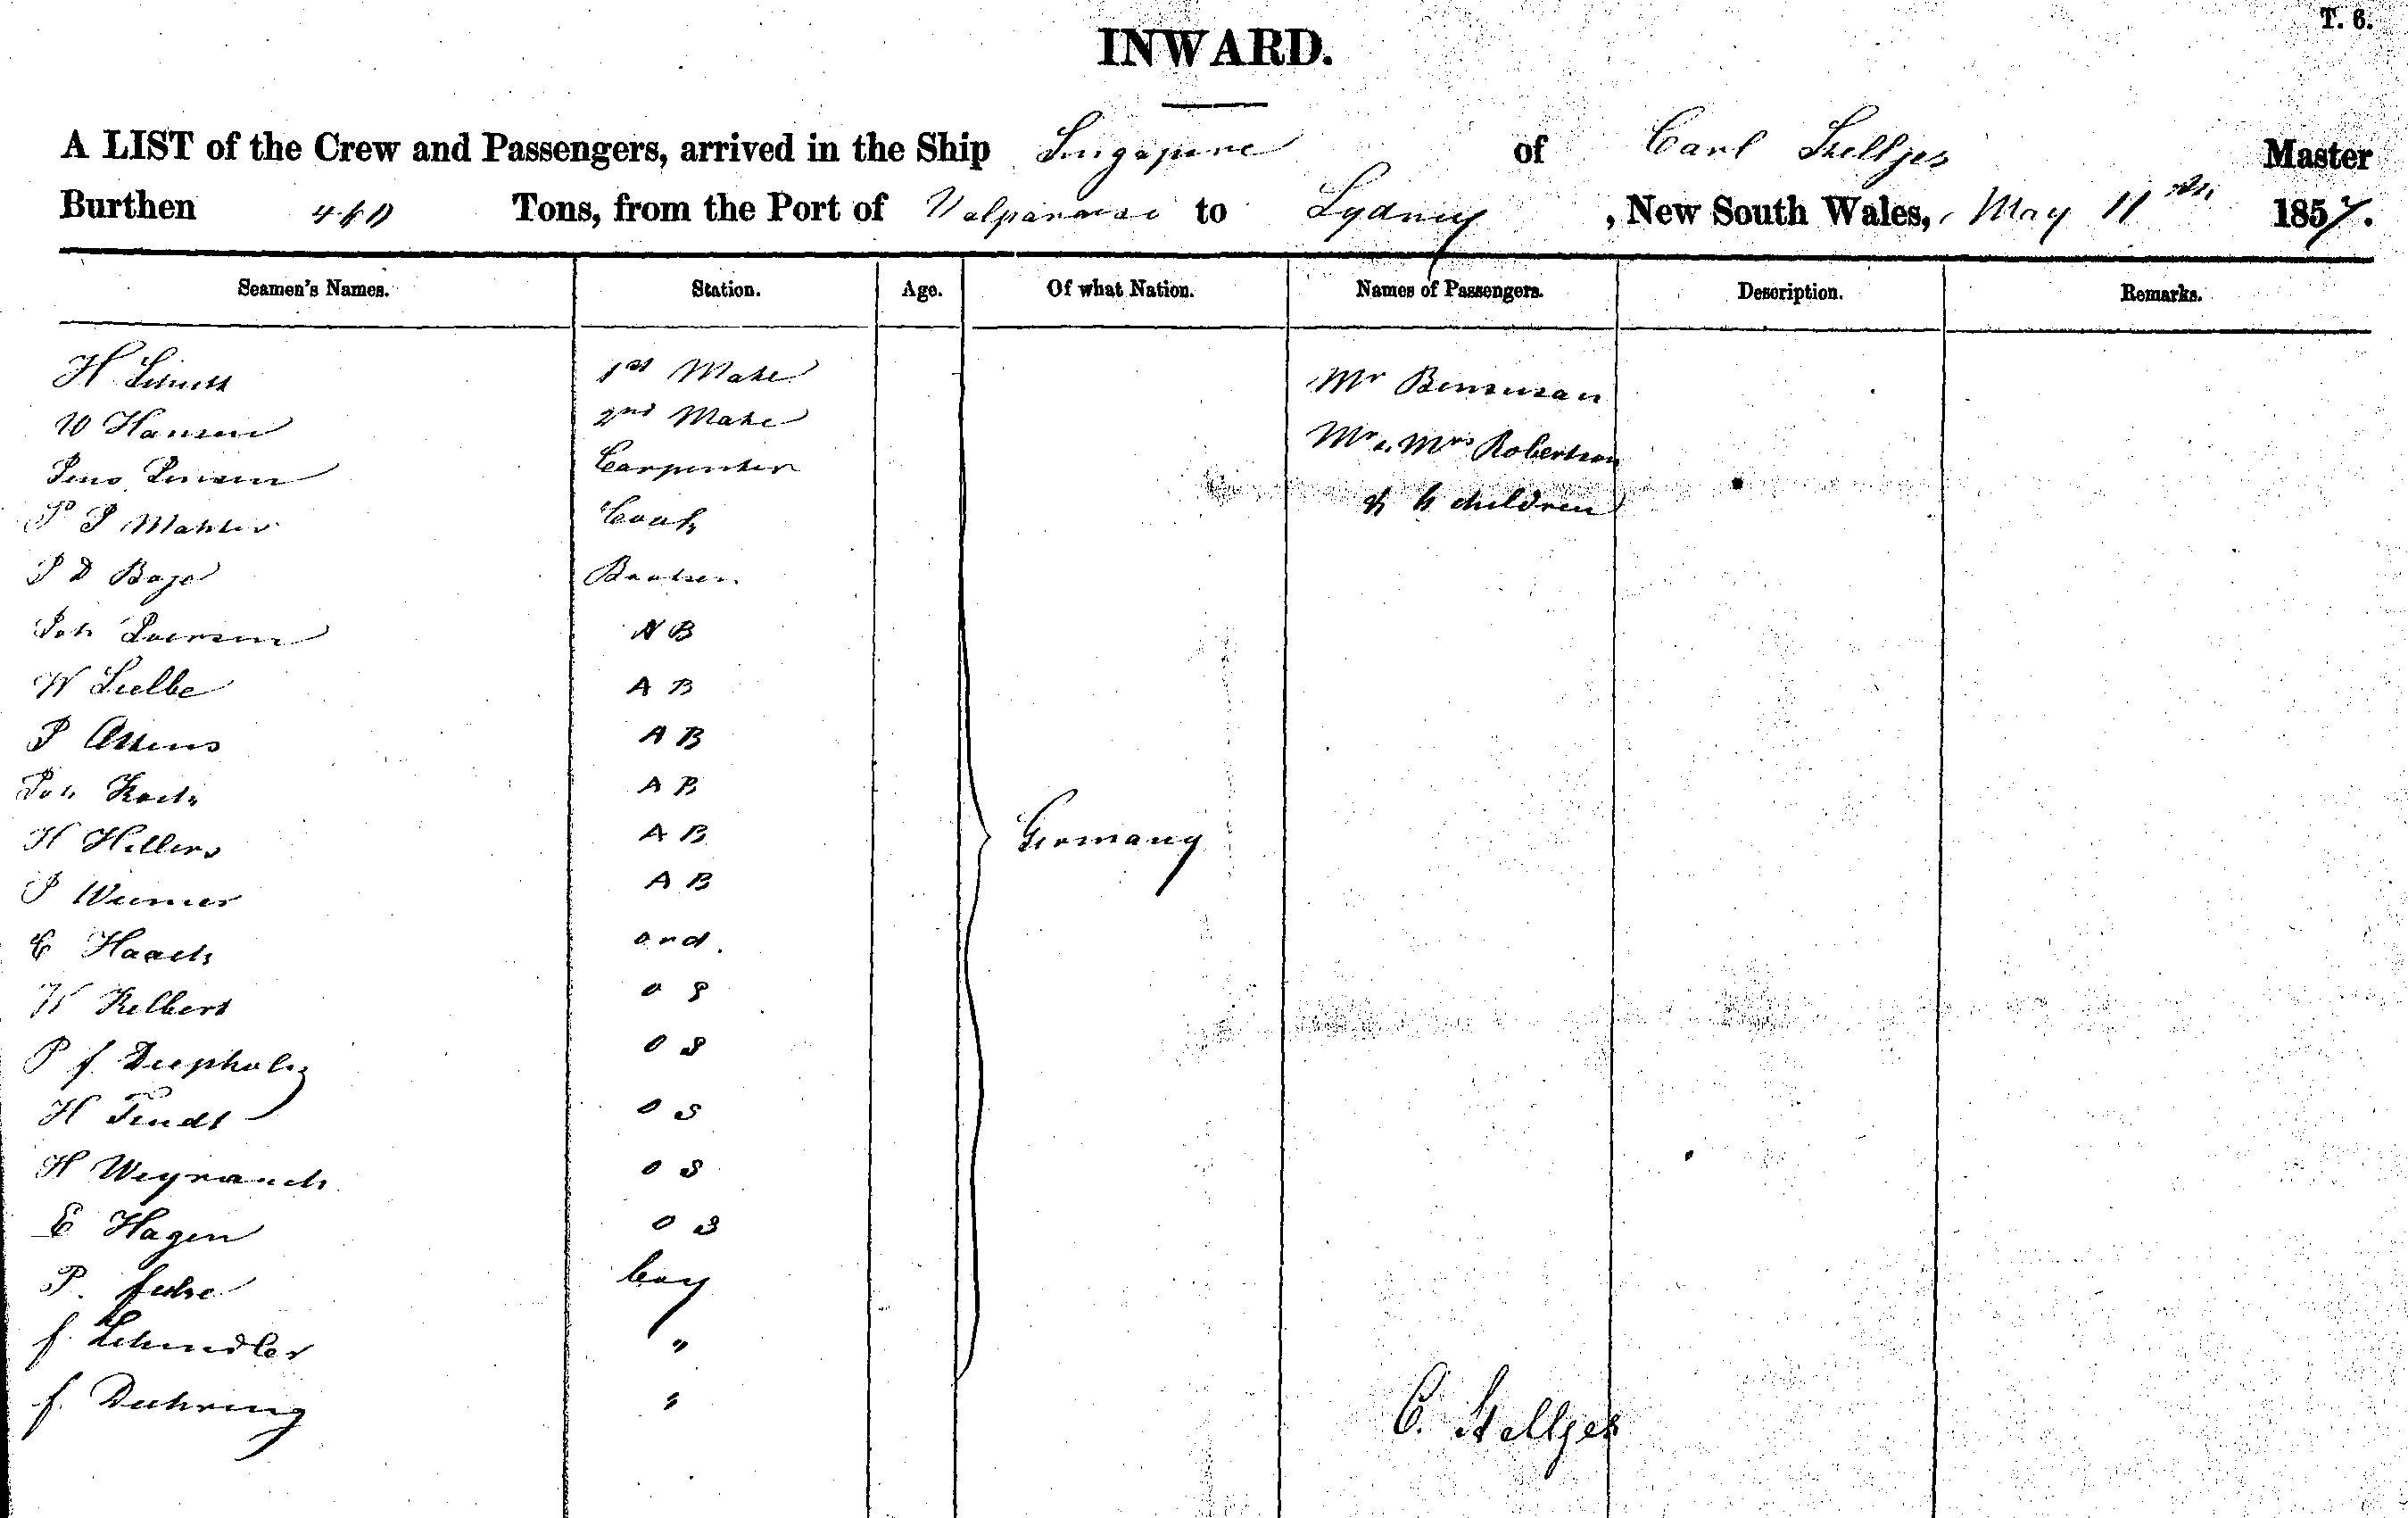 T. 6.
INWARD.
A LIST of the Crew and Passengers, arrived in the Ship Singapore of Carl Stelljes Master
Burthen 460 Tons, from the Port of Valparaiso to Sydney, New South Wales, May 11th 1857.
Seamen's Names. Station. Age. Of what Nation. Names of Passengers. Description. Remarks.
H 1st Mate Mr Bensusan
W Hansen 2nd Mate Mr & Mrs Robertson
Jens Jensen Carpenter & 6 children
P J Cook
J D Boje
Joh A B
W A B
J A B
Joh Koch A B
H Hillers A B Germany
J A B
C Haack ord.
W Kelbert O S
P f Diepholz O S
H Tindt O S
H Weyrauch O S
E Hagen O S
P. boy
f. Schindler "
f. Duhring "
C. Stelljes